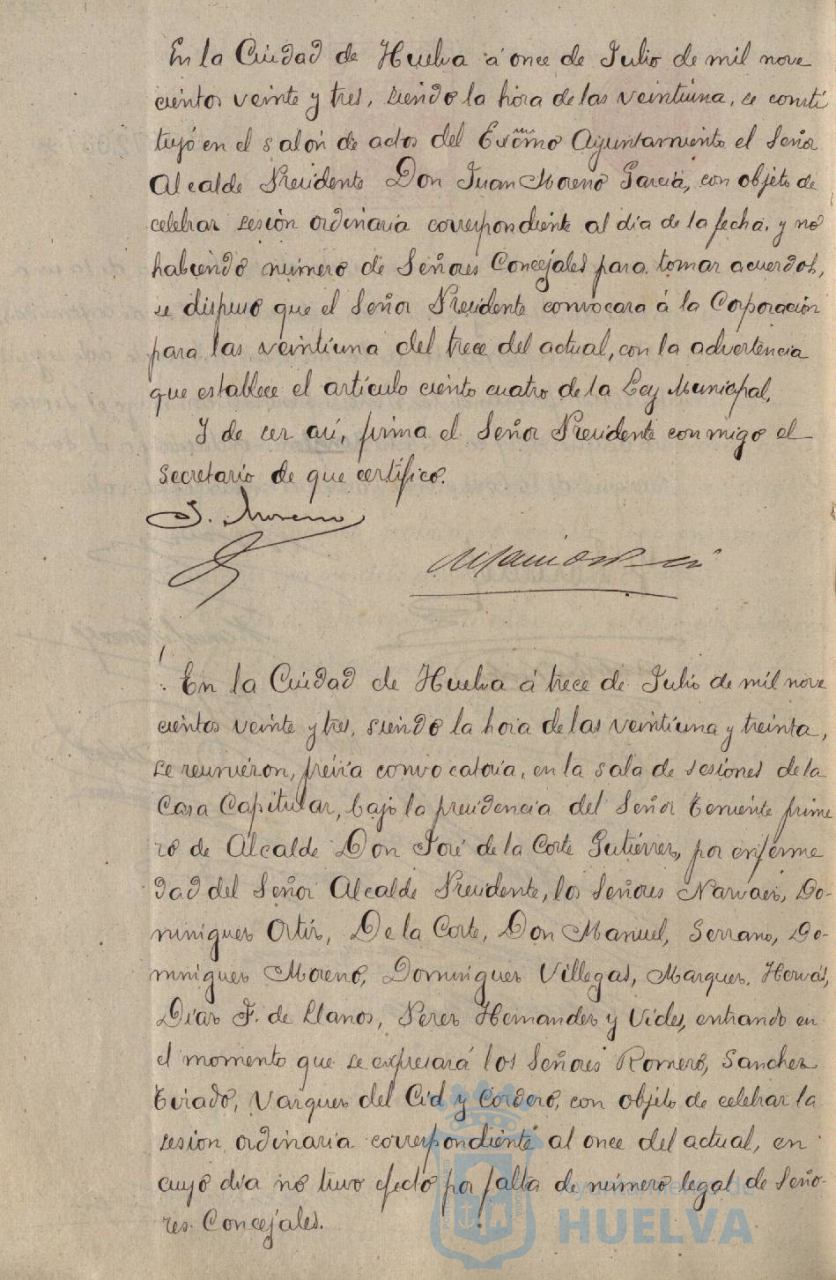 En la Ciudad de Huelva á once de Julio de mil nove
cientos veinte y tres, siendo la hora de las veintiuna, se consti
tuyó en el salón de actos del Excmo Ayuntamiento el Señor
Alcalde Presidente Don Juan Moreno García, con objeto de
celebrar sesión ordinaria correspondiente al día de la fecha, y no
habiendo número de Señores Concejales para tomar acuerdos,
se dispuso que el Señor Presidente convocara á la Corporación
para las veintiuna del trece del actual, con la advertencia
que establece el artículo ciento cuatro de la Ley Municipal.
Y de ser así, firma el Señor Presidente conmigo el
Secretario de que certífico.
J. Moreno
En la Ciudad de Huelva á trece de Julio de mil nove
cientos veinte y tres, siendo la hora de las veintiuna y treinta,
se reunieron, previa convocatoria, en la sala de sesiones de la
Casa Capitular, bajo la presidencia del Señor Teniente prime
ro de Alcalde Don José de la Corte Gutiérrez, por enferme
dad del Señor Alcalde Presidente, los Señores Narvaez, Do-
minguez Ortiz, De la Corte, Don Manuel, Serrano, Do-
minguez Moreno, Dominguez Villegas, Marquez, Hervás,
Díaz F. de Llanos, Perez Hernandez y Vides, entrando en
el momento que se expresará los Señores Romero, Sanchez
Tirado, Vazquez del Cid y Cordero, con objeto de celebrar la
sesion ordinaria correspondiente al once del actual, en
cuyo día no tuvo efecto por falta de número legal de Seño-
res Concejales.
Ayuntamiento de
HUELVA